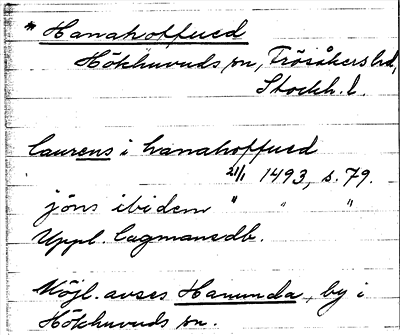 * Hanahoffued
Hökhuvuds sn, Frösåkers hd,
Stockh. l.
laurens i hanahoffued
21/1 1493, s. 79.
jöns ibidem " " "
Uppl. Lagmansdb.
Möjl. avses Hanunda, by i
Hökhuvuds sn.